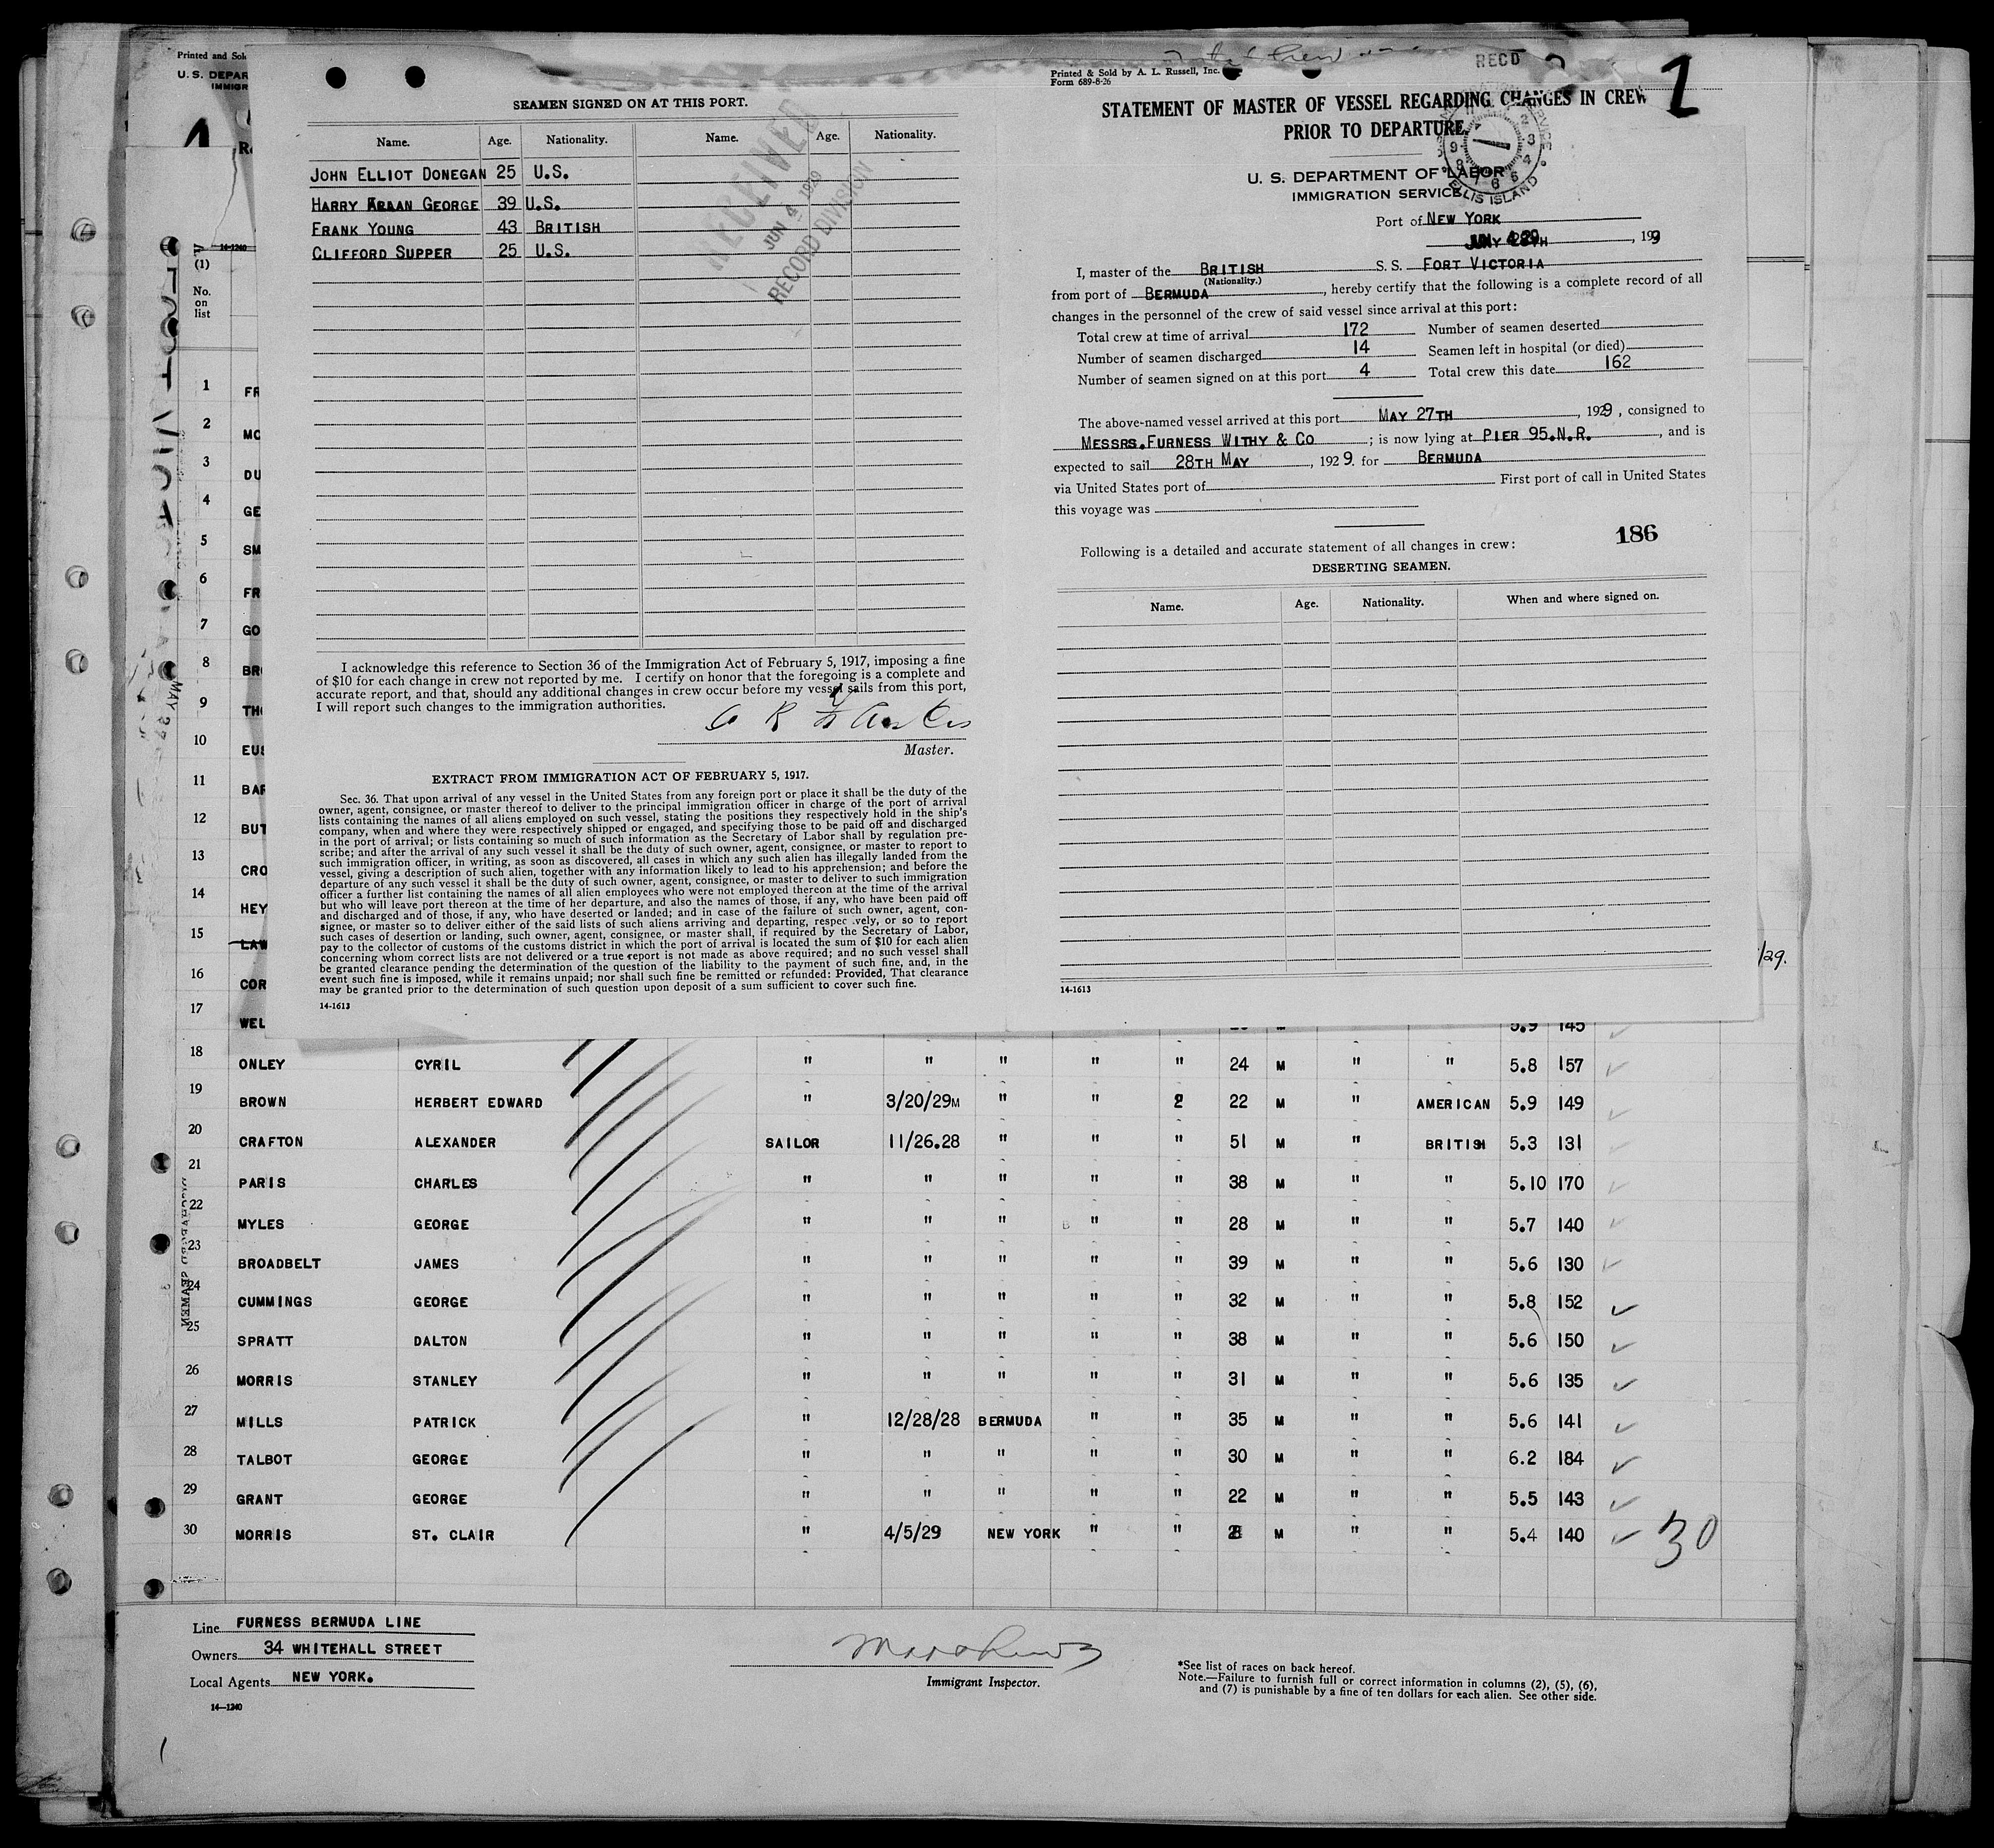 Printed and Sol
U. S. DEPAR
IMMIGR
SEAMEN SIGNED ON AT THIS PORT.
Name. Age. Nationality. Name. Age. Nationality.
JOHN ELLIOT DONEGAN 25 U.S.
HARRY ALLAN GEORGE 39 U.S.
FRANK YOUNG 43 BRITISH
CLIFFORD SUPPER 25 U.S.
RECEIVED
JUN 4 1929
RECORD DIVISION
I acknowledge this reference to Section 36 of the Immigration Act of February 5, 1917, imposing a fine
of $10 for each change in crew not reported by me. I certify on honor that the foregoing is a complete and
accurate report, and that, should any additional changes in crew occur before my vessel sails from this port,
I will report such changes to the immigration authorities.
Master.
EXTRACT FROM IMMIGRATION ACT OF FEBRUARY 5, 1917.
Sec. 36. That upon arrival of any vessel in the United States from any foreign port or place it shall be the duty of the
owner, agent, consignee, or master thereof to deliver to the principal immigration officer in charge of the port of arrival
lists containing the names of all aliens employed on such vessel, stating the positions they respectively hold in the ship's
company, when and where they were respectively shipped or engaged, and specifying those to be paid off and discharged
in the port of arrival; or lists containing so much of such information as the Secretary of Labor shall by regulation pre-
scribe; and after the arrival of any such vessel it shall be the duty of such owner, agent, consignee, or master to report to
such immigration officer, in writing, as soon as discovered, all cases in which any such alien has illegally landed from the
vessel, giving a description of such alien, together with any information likely to lead to his apprehension; and before the
departure of any such vessel it shall be the duty of such owner, agent, consignee, or master to deliver to such immigration
officer a further list containing the names of all alien employees who were not employed thereon at the time of the arrival
but who will leave port thereon at the time of her departure, and also the names of those, if any, who have been paid off
and discharged and of those, if any, who have deserted or landed; and in case of the failure of such owner, agent, con-
signee, or master so to deliver either of the said lists of such aliens arriving and departing, respec.vely, or so to report
such cases of desertion or landing, such owner, agent, consignee, or master shall, if required by the Secretary of Labor,
pay to the collector of customs of the customs district in which the port of arrival is located the sum of $10 for each alien
concerning whom correct lists are not delivered or a true report is not made as above required; and no such vessel shall
be granted clearance pending the determination of the question of the liability to the payment of such fine, and, in the
event such fine is imposed, while it remains unpaid; nor shall such fine be remitted or refunded: Provided, That clearance
may be granted prior to the determination of such question upon deposit of a sum sufficient to cover such fine.
14-1613
Printed & Sold by A. L. Russell, Inc.
Form 689-8-26
RECD
1
STATEMENT OF MASTER OF VESSEL REGARDING CHANGES IN CREW
PRIOR TO DEPARTURE.
U. S. DEPARTMENT OF LABOR
IMMIGRATION SERVICE
ELLIS ISLAND
Port of NEW YORK
MAY 28TH, 1929
I, master of the BRITISH S. S. FORT VICTORIA
(Nationality.)
from port of BERMUDA, hereby certify that the following is a complete record of all
changes in the personnel of the crew of said vessel since arrival at this port:
Total crew at time of arrival 172 Number of seamen deserted
Number of seamen discharged 14 Seamen left in hospital (or died)
Number of seamen signed on at this port 4 Total crew this date 162
The above-named vessel arrived at this port MAY 27TH, 1929, consigned to
MESSRS.FURNESS WITHY & CO; is now lying at PIER 95.N.R., and is
expected to sail 28TH MAY, 1929. for BERMUDA
via United States port of First port of call in United States
this voyage was
186
Following is a detailed and accurate statement of all changes in crew:
DESERTING SEAMEN.
Name. Age. Nationality. When and where signed on.
14-1613
14-1240
(1)
No.
on
list
1 FR
2 MO
3 DU
4 GE
5 SM
6 FR
7 GO
8 BR
9 TH
10 EUS
11 BAR
12 BUT
13 CRO
14 HEY
15 LAW
/29.
16 COR
17 WEL 5.9 145
18 ONLEY CYRIL " " " " " 24 M " " 5.8 157
19 BROWN HERBERT EDWARD " 3/20/29M " " 2 22 M " AMERICAN 5.9 149
20 CRAFTON ALEXANDER SAILOR 11/26.28 " " " 51 M " BRITISH 5.3 131
21 PARIS CHARLES " " " " " 38 M " " 5.10 170
22 MYLES GEORGE " " " " " 28 M " " 5.7 140
23 BROADBELT JAMES " " " " " 39 M " " 5.6 130
24 CUMMINGS GEORGE " " " " " 32 M " " 5.8 152
25 SPRATT DALTON " " " " " 38 M " " 5.6 150
26 MORRIS STANLEY " " " " " 31 M " " 5.6 135
27 MILLS PATRICK " 12/28/28 BERMUDA " " 35 M " " 5.6 141
28 TALBOT GEORGE " " " " " 30 M " " 6.2 184
29 GRANT GEORGE " " " " " 22 M " " 5.5 143
30 MORRIS ST. CLAIR " 4/5/29 NEW YORK " " M " " 5.4 140 30
DISCHARGED SEAMEN
Line FURNESS BERMUDA LINE
Owners 34 WHITEHALL STREET
Local Agents NEW YORK.
14—1240
Immigrant Inspector.
*See list of races on back hereof.
Note.—Failure to furnish full or correct information in columns (2), (5), (6),
and (7) is punishable by a fine of ten dollars for each alien. See other side.